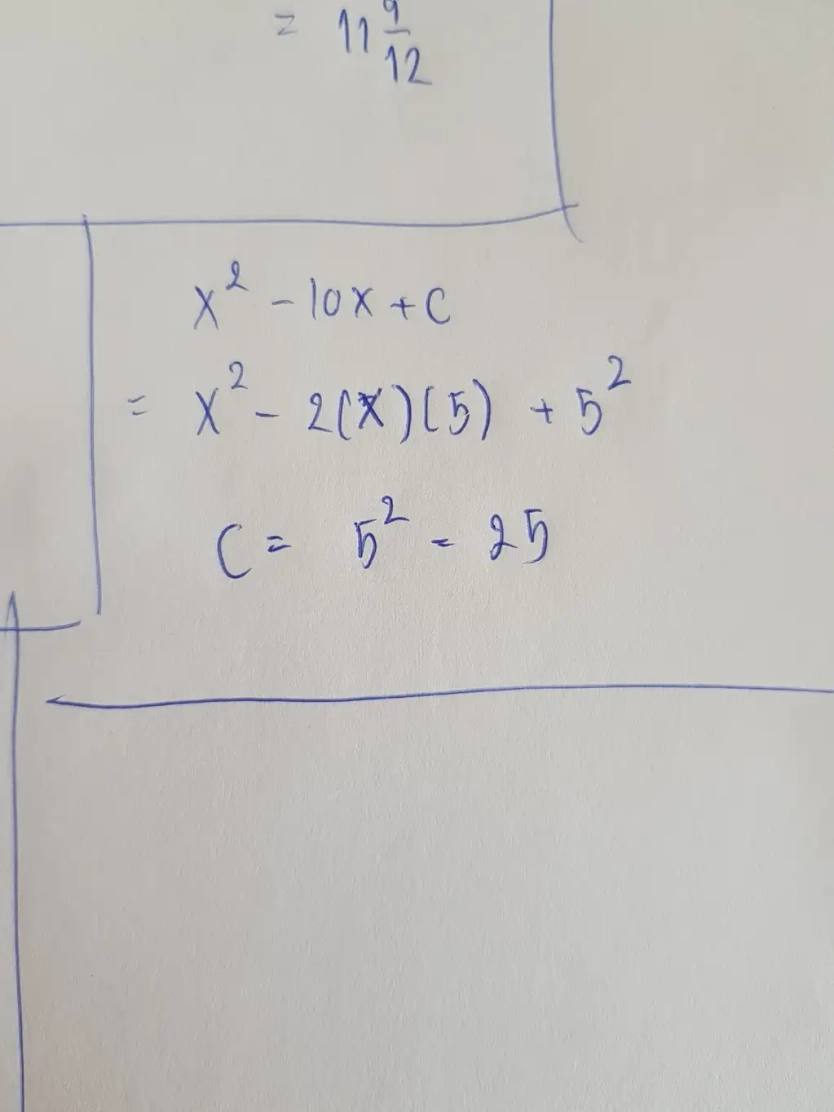 = 11 9/12
x² - 10x + C
= x² - 2(x)(5) + 5²
C = 5² = 25